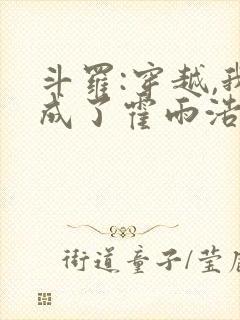 斗罗:穿越,我
成了霍雨浩
街道童子/莹